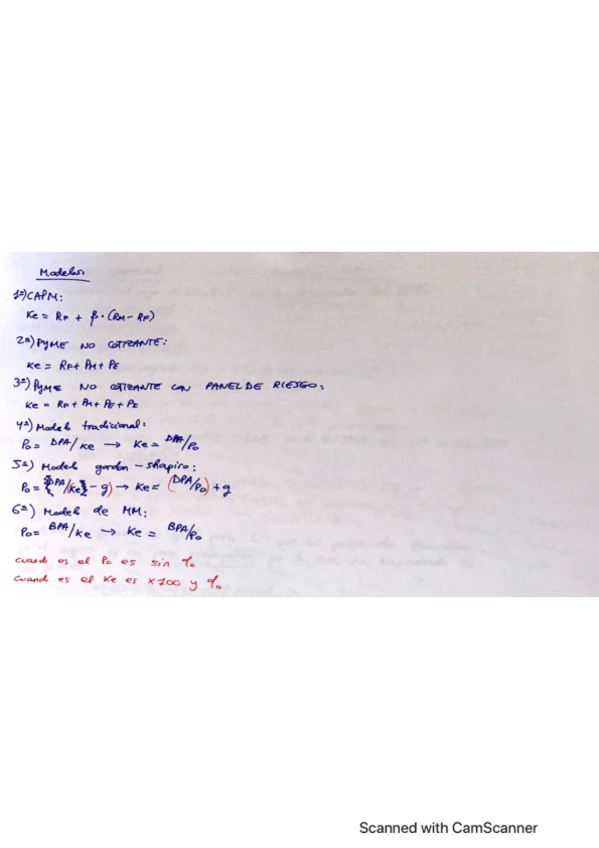 Modelos:
1º) CAPM:
Ke = RF + β·(RM - RF)
2º) PYME NO COTIZANTE:
Ke = RF + PM + PE
3º) PYME NO COTIZANTE CON PANEL DE RIESGO:
Ke = RF + PM + PE + PE
4º) Modelo tradicional:
Po = DPA/Ke → Ke = DPA/Po
5º) Modelo gordon-shapiro:
Po = {DPA/(Ke} - g) → Ke = (DPA/Po) + g
6º) Modelo de MM:
Po = BPA/Ke → Ke = BPA/Po
cuando es el Po es sin %
cuando es el Ke es x100 y %
Scanned with CamScanner